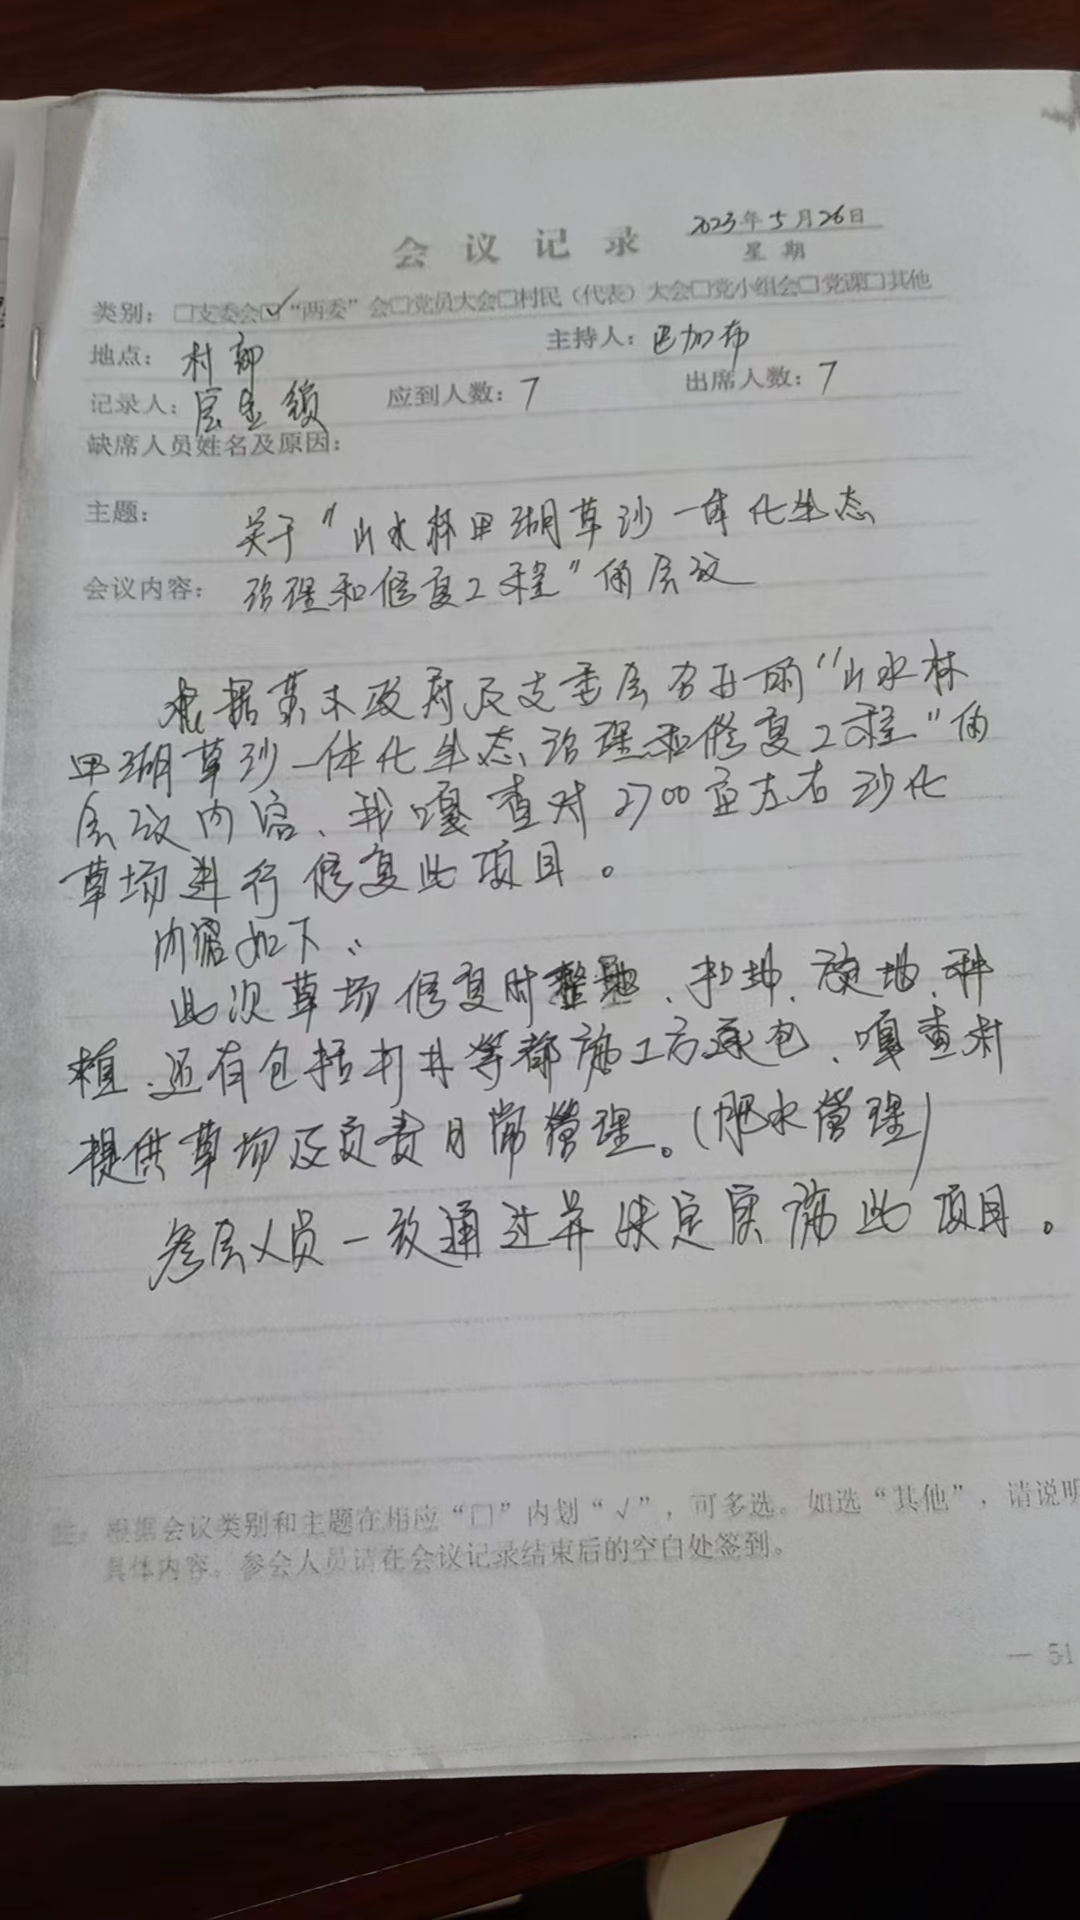 2023年5月26日
会议记录
星期
类别：□支委会☑“两委”会□党员大会□村民（代表）大会□党小组会□党课□其他
地点：村部 主持人：巴加布
记录人：金锁 应到人数：7 出席人数：7
缺席人员姓名及原因：
主题：关于“山水林田湖草沙一体化生态
会议内容：治理和修复工程”的会议
根据苏木政府及支委会召开的“山水林
田湖草沙一体化生态治理和修复工程”的
会议内容、我嘎查对2700亩左右沙化
草场进行修复此项目。
内容如下：
此次草场修复时整地、扣地、旋地、种
植、还有包括打井等都施工方承包、嘎查村
提供草场及负责日常管理。（肥水管理）
参会人员一致通过并决定实施此项目。
注：根据会议类别和主题在相应“□”内划“√”，可多选。如选“其他”，请说明
具体内容。参会人员请在会议记录结束后的空白处签到。
— 51